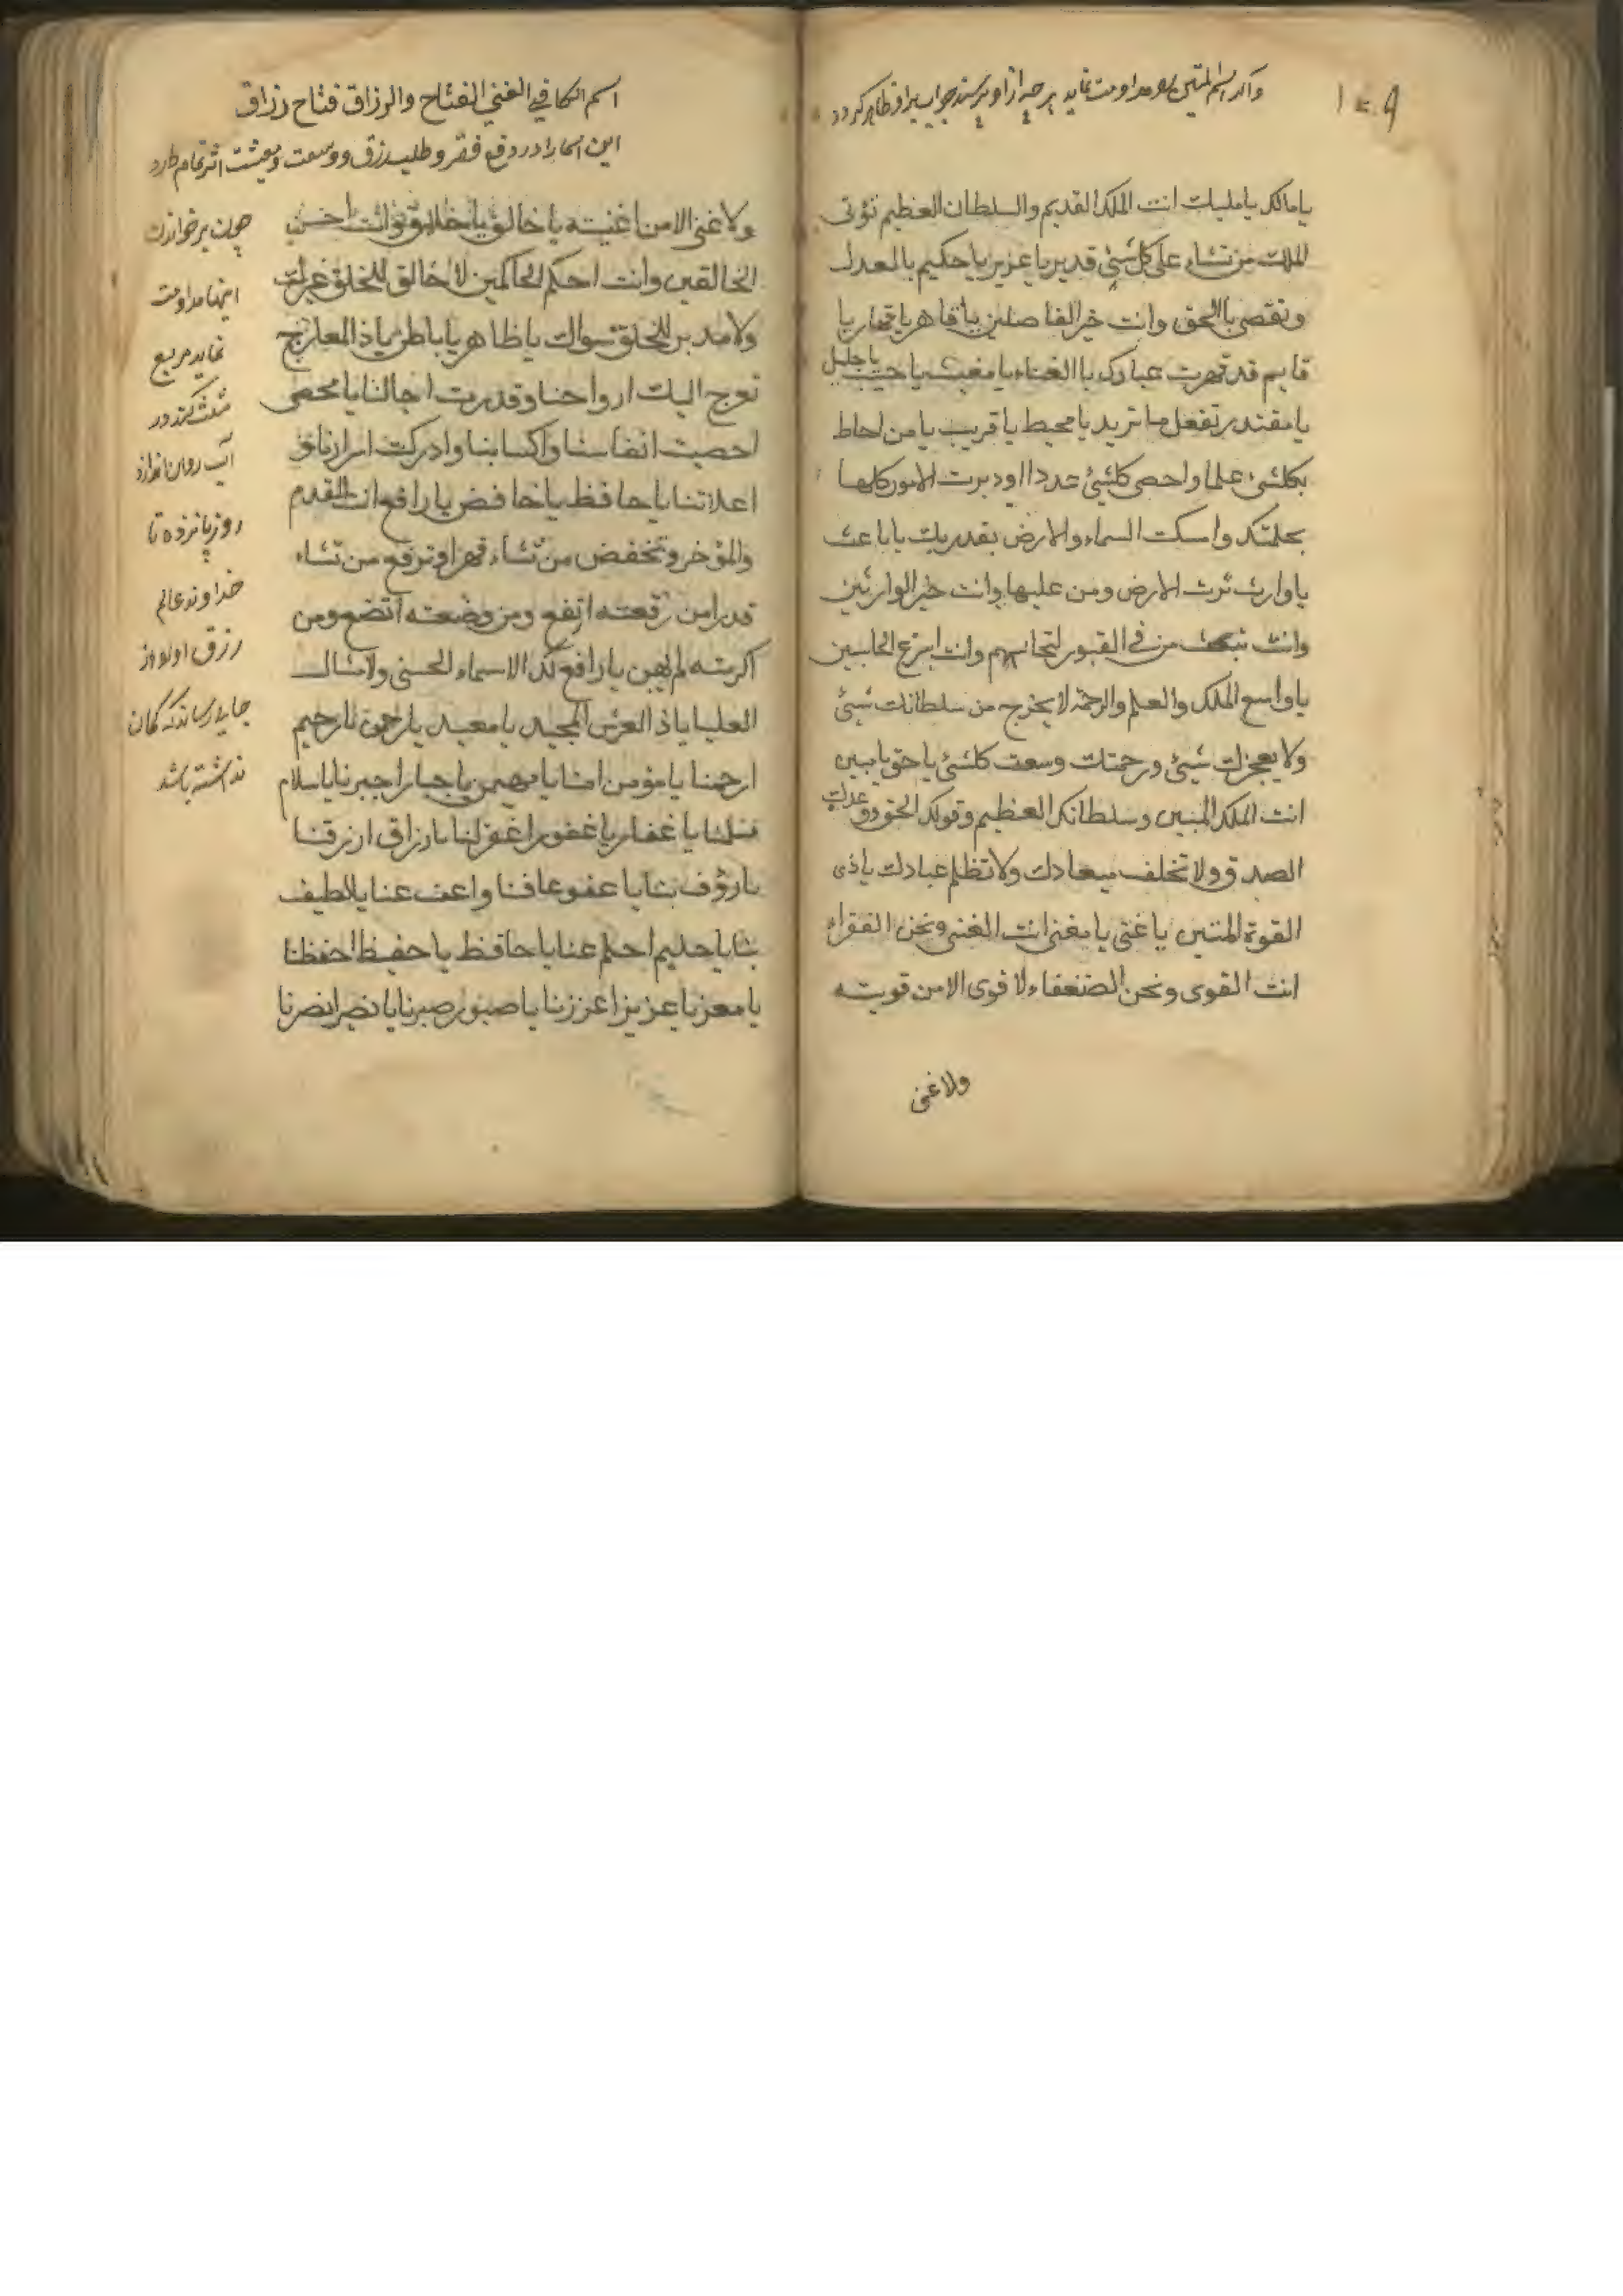 واکر اسم المتین مداومت نماید هر چه از او پرسند جواب بر او ظاهر کردد
یا مالک یا ملیک انت الملک القدیم والسلطان العظیم تؤتی
الملک من تشاء علی کل شیئ قدیر یا عزیز یا حکیم بالعدل
وتقضی باالحق وانت خیر الفاصلین یا قاهر یا قهار یا
قایم قد قهرت عبادک باالفناء یا مغیث یا حبیب یا جلیل
یا مقتدر تفعل ما ترید یا محیط یا قریب یا من احاط
بکلشیء علما واحصی کلشیئ عددا ودبرت الامور کلها
بحکمتک وامسکت السماء والارض بقدرتک یا باعث
یا وارث ترث الارض ومن علیها وانت خیر الوارثین
وانت تبعث من فی القبور لتحاسبهم وانت اسرع الحاسبین
یا واسع الملک والعلم والرحمة لا یخرج من سلطانک شیئ
ولا یعجزک شیئ ورحمتک وسعت کلشیئ یا حق یا مبین
انت الملک المبین وسلطانک العظیم وقولک الحق ووعدک
الصدق ولا تخلف میعادک ولا تظلم عبادک یا ذی
القوة المتین یا غنی یا مغنی انت الغنی ونحن الفقراء
انت القوی ونحن الضعفاء لا قوی الا من قویته
ولا غنی
اسم الکافی الغنی الفتاح والرزاق فتاح رزاق
این اسما را در دفع فقر و طلب رزق و وسعت معیشت اثر تمام دارد
ولا غنی الا من اغنیته یا خالق یا خلاق وانت احسن
الخالقین وانت احکم الحاکمین لا خالق للخلق غیرک
ولا مدبر للخلق سواک یا ظاهر یا باطن یا ذا المعارج
تعرج الیک ارواحنا وقدرت اجالنا یا محصی
احصیت انفاسنا واکسابنا وادرکت اسرارنا فی
اعلاننا یا حافظ یا خافض یا رافع انت المقدم
والمؤخر وتخفض من تشاء قهرا وترفع من تشاء
قدرا من رفعته ارتفع ومن وضعته اتضع ومن
اکرمته لم یهن یا رافع لک الاسماء الحسنی والامثال
العلیا یا ذا العرش المجید یا معید یا رحمن یا رحیم
ارحمنا یا مؤمن امنا یا مهیمن یا جبار اجبرنا یا سلام
سلمنا یا غفار یا غفور اغفر لنا یا رزاق ارزقنا
یا رؤف بنا یا عفو عافنا واعف عنا یا لطیف
بنا یا حلیم احلم عنا یا حافظ یا حفیظ احفظنا
یا معز یا عزیز اعززنا یا صبور صبرنا یا نصیر انصرنا
چون بر خواندن
اینها مداومت
نماید مربع
مثلث کند و در
آب روان اندازد
روز پانزده تا
خداوند عالم
رزق اولاد از
جایی رساند که کمان
نداشته باشد